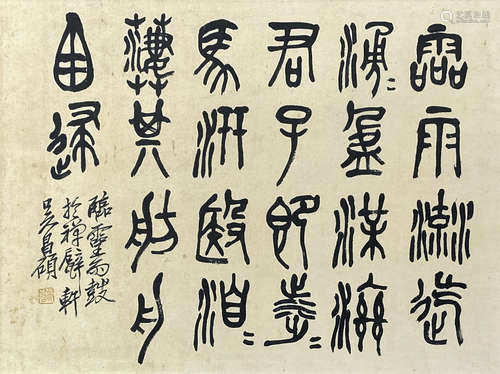 霝雨流迄
湧〻盈渫濟
君子即涉〻
馬汧殹洎〻
其舫舟
逮
臨霝雨鼓
於禪甓軒
吳昌碩